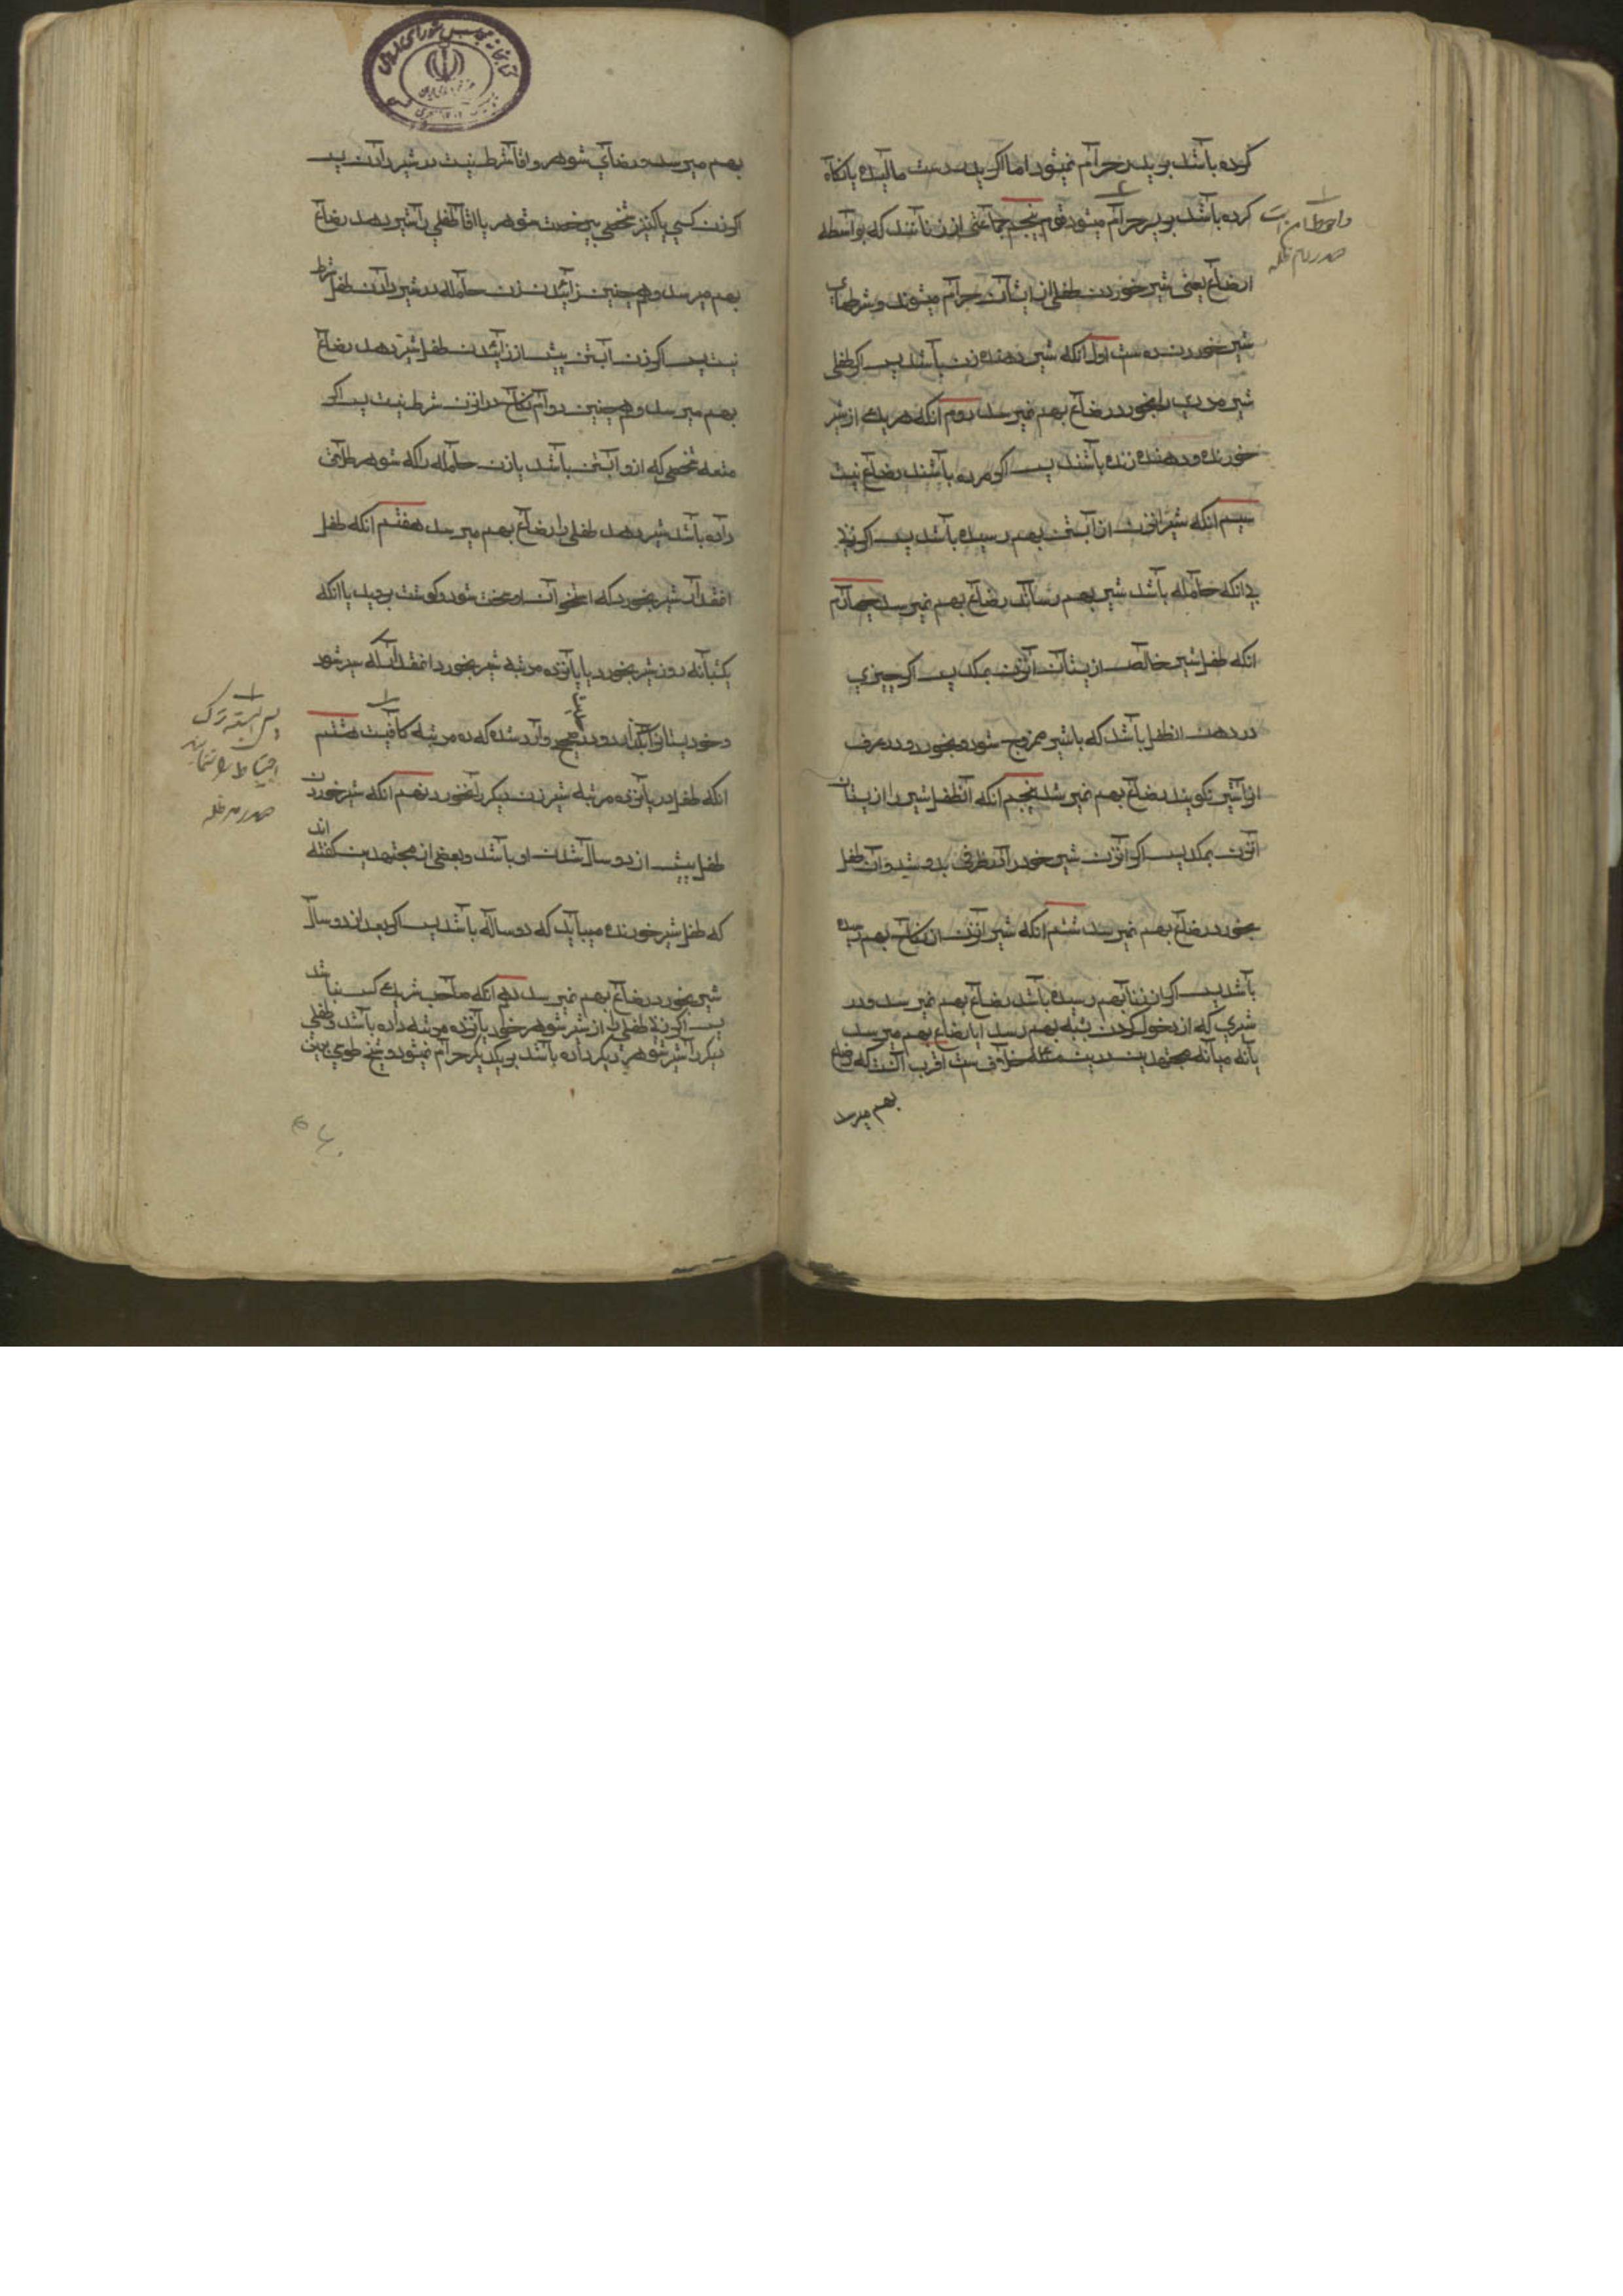 کرده باشد بر پدر حرام نمیشود اما اکر پدر دست مالیده یا نکاه
کرده باشد بر پسر حرام میشود قسم پنجم جماعتی از زنانند که بواسطه
ارضاع یعنی شیر خوردن طفلی از ایشان حرام میشوند و شرطهای
شیر خوردن ده ست اول آنکه شیر دهنده زن باشد پس اکر طفلی
شیر مردی را بخورد رضاع بهم نمیرسد دوم آنکه هر یک از شیر
خورنده و دهنده زنده باشند پس اکر مرده باشند رضاع نیست
سیم آنکه شیر آنزن از آبستنی بهم رسیده باشد پس اکر زنی
بی آنکه حامله باشد شیر بهم رساند رضاع بهم نمیرسد چهارم
آنکه طفل شیر خالص از پستان آنزن بمکد پس اکر چیزی
در دهن آنطفل باشد که با شیر ممزوج شود و بخورد و در عرف
او را شیر نکویند رضاع بهم نمیرسد پنجم آنکه آنطفل شیر را از پستان
آنزن بمکد پس اکر آنزن شیر خود را در ظرفی بدوشد و آن طفل
بخورد رضاع بهم نمیرسد ششم آنکه شیر آنزن از نکاح بهم رسیده
باشد پس اکر از زنا بهم رسیده باشد رضاع بهم نمیرسد و در
شیری که از دخول کردن بشبه بهم رسد آیا رضاع بهم میرسد
یا نه میانه مجتهدین درین مسئله خلاف ست اقرب آنست که رضاع
بهم میرسد
و احوط این است
صدر دام ظله
بهم میرسد و رضای شوهر و اقا شرط نیست در شیر دادن پس
اکر زن کسی یا کنیز شخصی بی رخصت شوهر یا اقا طفلی را شیر دهد رضاع
بهم میرسد و همچنین زائیدن زن حامله در شیر دادن طفل شرط
نیست پس اکر زن آبستن پیش از زائیدن طفل شیر دهد رضاع
بهم میرسد و همچنین دوام نکاح در آنزن شرط نیست پس اکر
متعه شخصی که از و آبستن باشد یا زن حامله را که شوهر طلاقش
داده باشد شیر دهد طفلی را رضاع بهم میرسد هفتم آنکه طفل
آنقدر شیر بخورد که استخوان او سخت شود و کوشت بروید یا آنکه
یکشبانه روز شیر بخورد یا پانزده مرتبه شیر بخورد آنقدر که سیر شود
و خود پستان را بکذارد و در حدیث صحیح وارد شده که ده مرتبه کافیست هشتم
آنکه طفل در پانزده مرتبه شیر زن دیکر را نخورد نهم آنکه شیر خوردن
طفل پیش از دو سال شدن او باشد و بعضی از مجتهدین کفته اند
که طفل شیر خورنده میباید که دو ساله باشد پس اکر بعد از دو سال
شیر بخورد رضاع بهم نمیرسد دهم آنکه صاحب شیر یک کس باشد
پس اکر زنی طفلی را از شیر شوهر خود پانزده مرتبه داده باشد و طفلی
دیکر را شیر شوهر دیکر داده باشد بر یکدیکر حرام نمیشود و شیخ طوسی برین
پس البته ترک
احتیاط ننمایند
صدر دام ظله